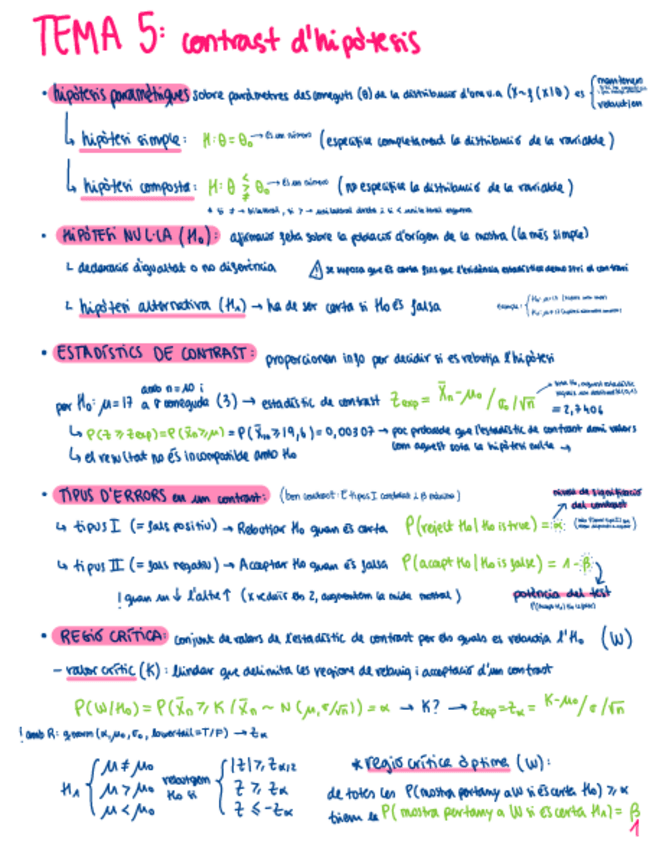 TEMA 5: contrast d'hipòtesis
• hipòtesis paramètriques sobre paràmetres desconeguts (θ) de la distribució d'una v.a (X~f(x|θ)) es { mantenen
rebutgen
↳ hipòtesi simple: H: θ = θ₀ → és un número (especifica completament la distribució de la variable)
↳ hipòtesi composta: H: θ ≶ θ₀ → és un número (no especifica la distribució de la variable)
* si ≠ → bilateral, si > → unilateral dreta i si < unilateral esquerra
• HIPÒTESI NUL·LA (H₀): afirmació feta sobre la població d'origen de la mostra (la més simple)
↳ declaració d'igualtat o no diferència ⚠ se suposa que és certa fins que l'evidència estadística demostri el contrari
↳ hipòtesi alternativa (H₁) → ha de ser certa si H₀ és falsa
• ESTADÍSTICS DE CONTRAST: proporcionen info per decidir si es rebutja l'hipòtesi
amb n=10 i
per H₀: μ=17 a σ coneguda (3) → estadístic de contrast Zexp = X̄n-μ₀ / σ₀/√n
= 2,7406
↳ P(Z ≥ Zexp) = P(X̄n ≥ μ) = P(X̄10 ≥ 19,6) = 0,00307 → poc probable que l'estadístic de contrast doni valors
com aquest sota la hipòtesi nul·la →
↳ el resultat no és incompatible amb H₀
• TIPUS D'ERRORS en un contrast:
nivell de significació
del contrast
↳ tipus I (= fals positiu) → Rebutjar H₀ quan és certa P(reject H₀ | H₀ is true) = α
↳ tipus II (= fals negatiu) → Acceptar H₀ quan és falsa P(accept H₀ | H₀ is false) = 1-β
! quan un ↓ l'altre ↑ (x reduir els 2, augmentem la mida mostral)
potència del test
• REGIÓ CRÍTICA: conjunt de valors de l'estadístic de contrast per els quals es rebutja l'H₀ (W)
- valor crític (K): llindar que delimita les regions de rebuig i acceptació d'un contrast
P(W/H₀) = P(X̄n ≥ K / X̄n ~ N(μ, σ/√n)) = α → K? → Zexp = Zα = K-μ₀ / σ/√n
! amb R: qnorm(α, μ₀, σ₀, lower.tail=T/F) → Zα
H₁ { μ ≠ μ₀ rebutgem H₀ si { |Z| ≥ Zα/2
μ > μ₀ Z ≥ Zα
μ < μ₀ Z ≤ -Zα
* regió crítica òptima (W):
de totes les P(mostra pertany a W si és certa H₀) ≥ α
triem la P(mostra pertany a W si és certa H₁) = β
1